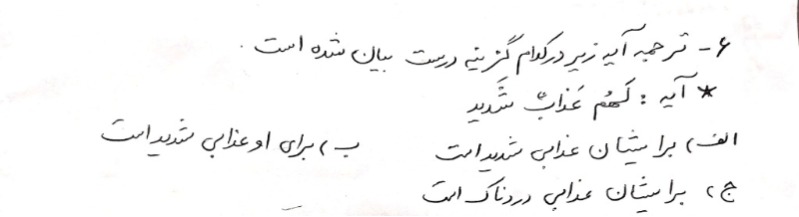 ۶- ترجمه آیه زیر در کدام گزینه درست بیان شده است.
* آیه : لَهُم عَذابٌ شَدید
الف) برایشان عذابی شدید است ب) برای او عذابی شدید است
ج) برایشان عذابی دردناک است